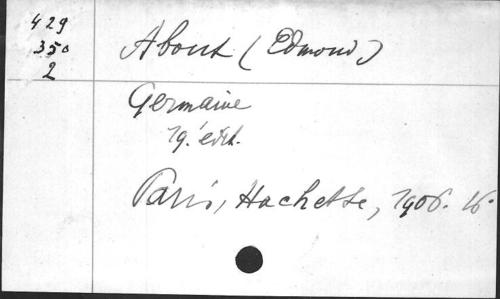 429
350
2
About (Edmond)
Germaine
19.' edit.
Paris, Hachette, 1906. 16.